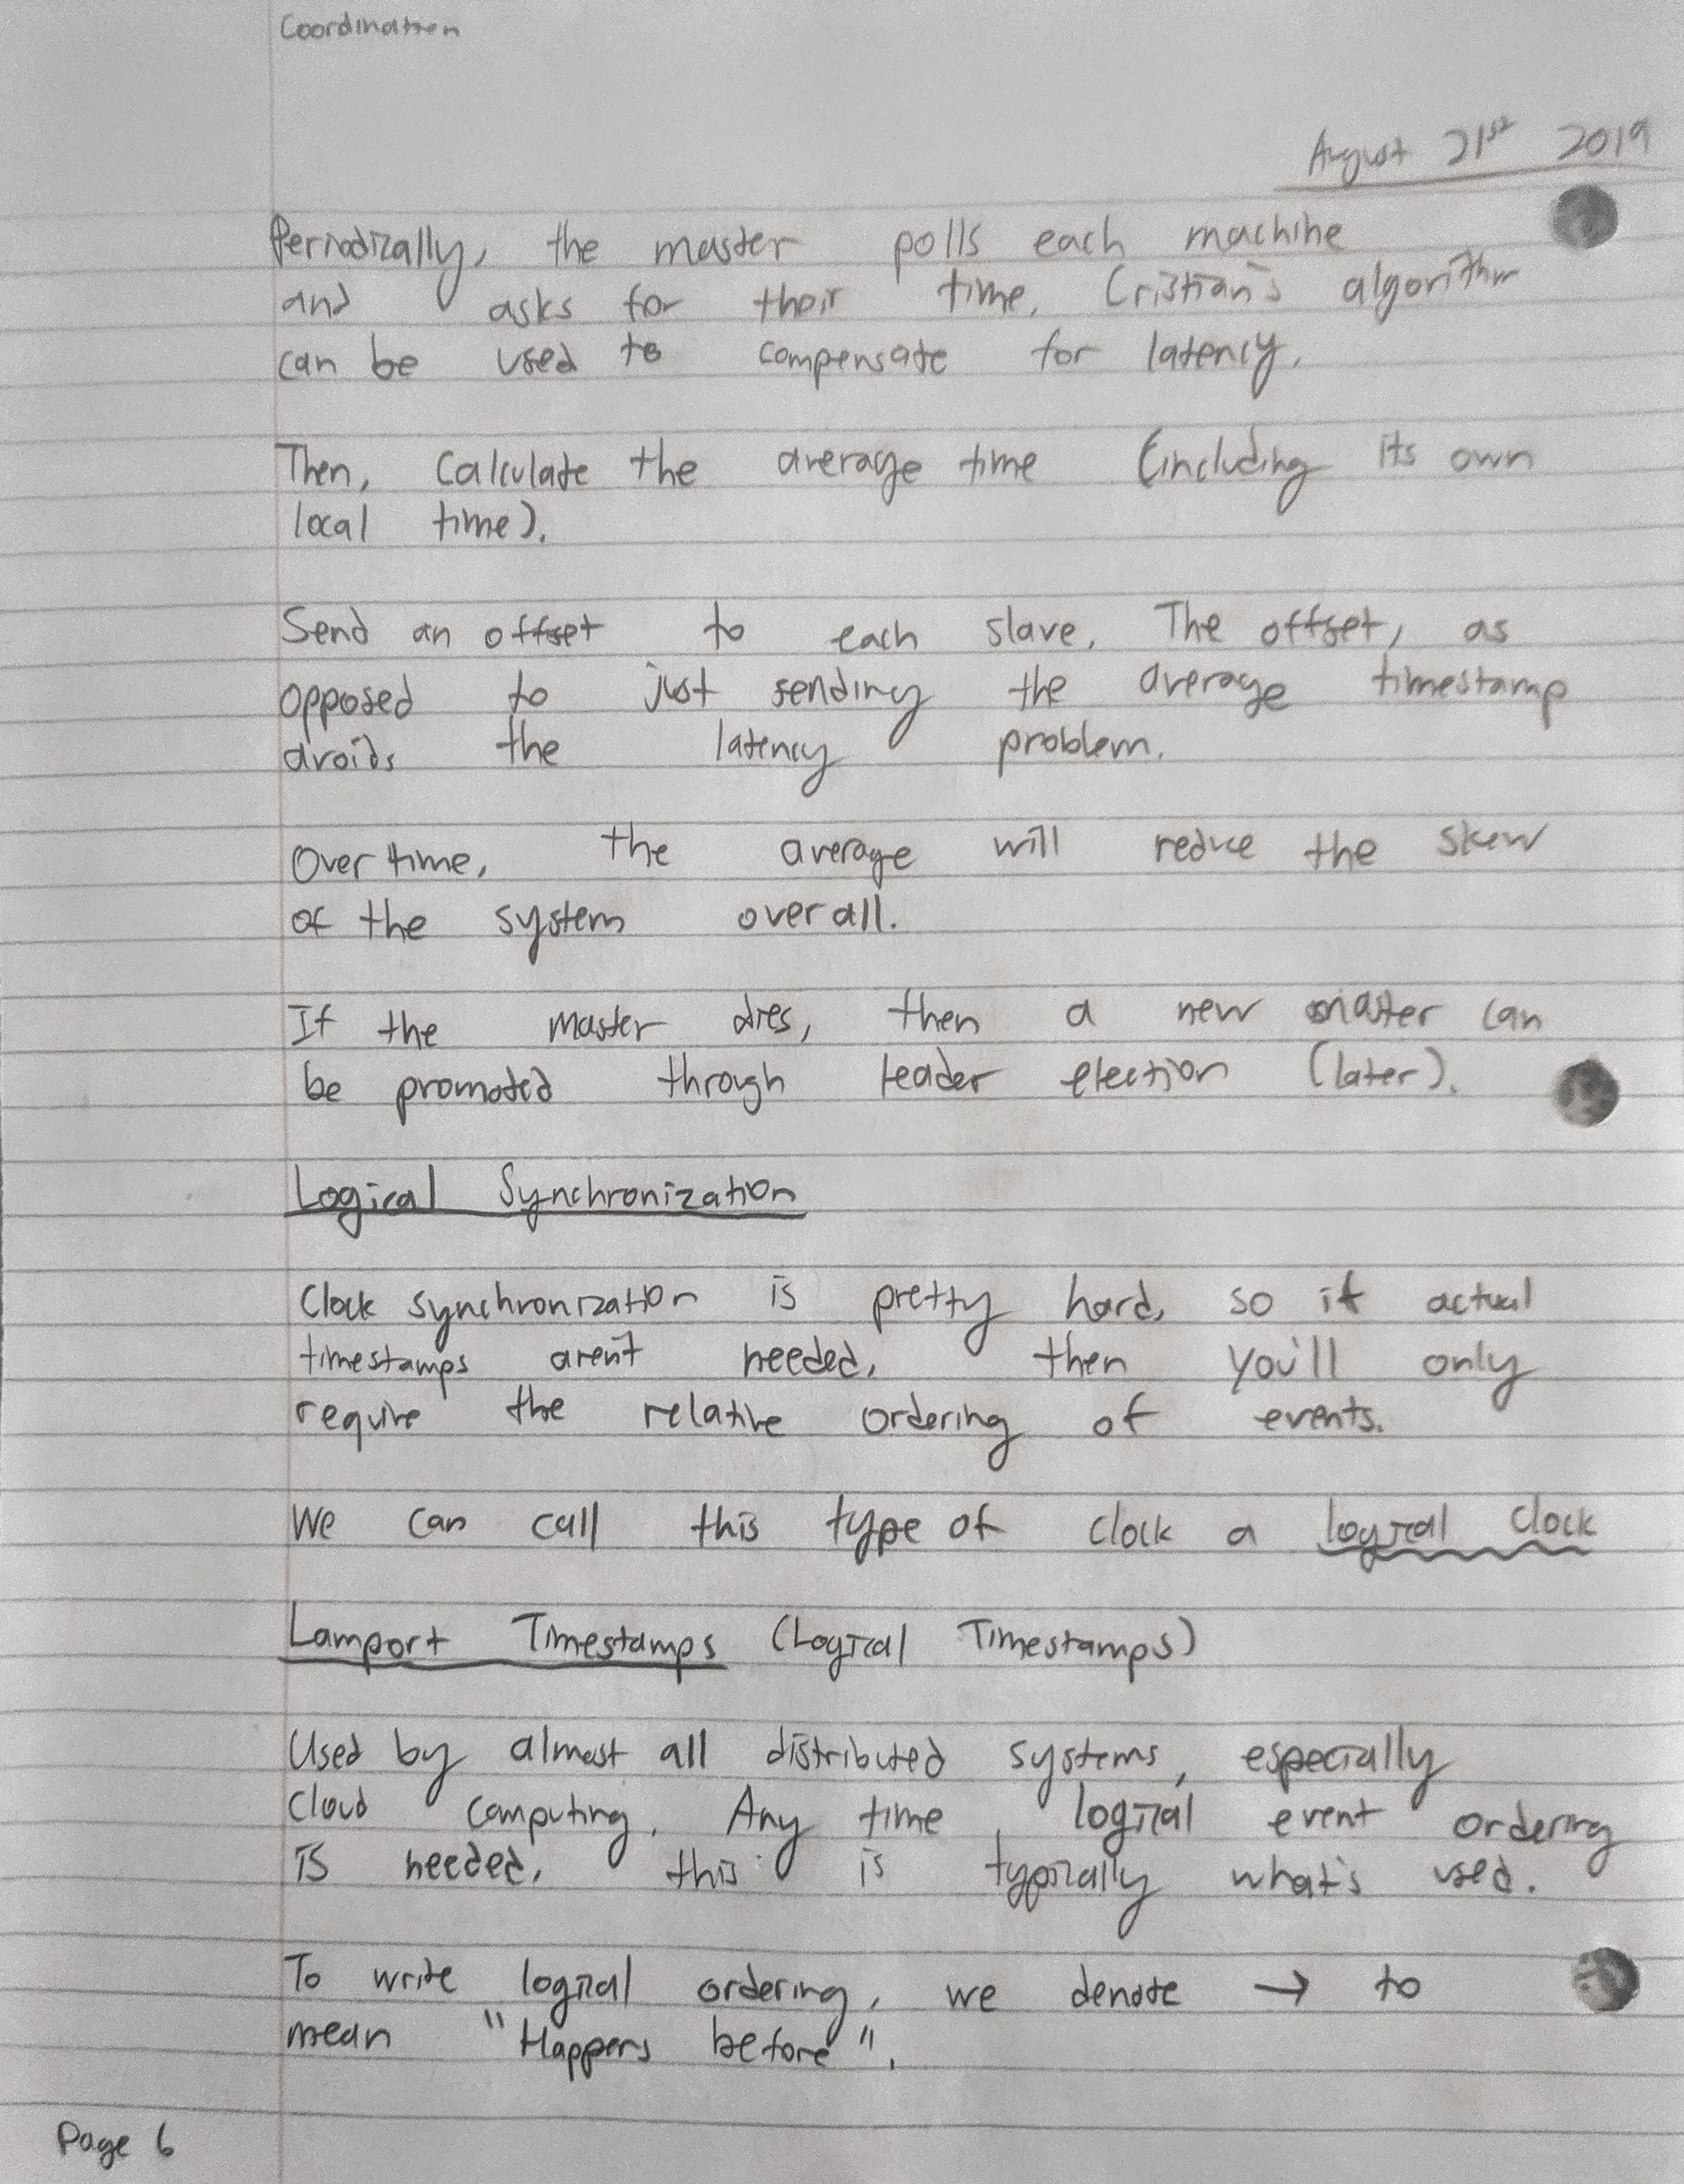 Coordination
August 21st 2019
Periodically, the master polls each machine
and asks for their time. Cristian's algorithm
can be used to compensate for latency.
Then, calculate the average time (including its own
local time).
Send an offset to each slave. The offset, as
opposed to just sending the average timestamp
avoids the latency problem.
Over time, the average will reduce the skew
of the system overall.
If the master dies, then a new master can
be promoted through leader election (later).
Logical Synchronization
Clock synchronization is pretty hard, so if actual
timestamps aren't needed, then you'll only
require the relative ordering of events.
We can call this type of clock a logical clock
Lamport Timestamps (Logical Timestamps)
Used by almost all distributed systems, especially
cloud computing. Any time logical event ordering
is needed, this is typically what's used.
To write logical ordering, we denote → to
mean "Happens before".
Page 6